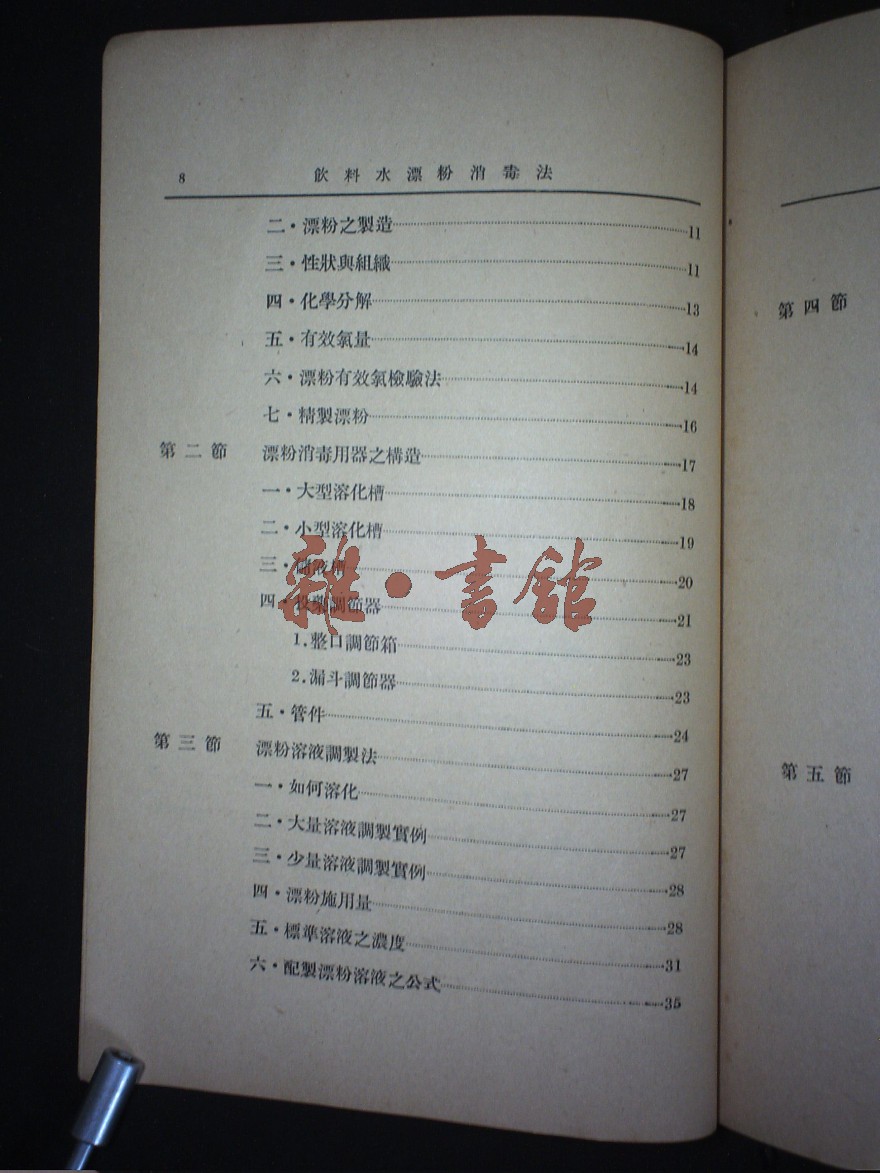 8 飲料水漂粉消毒法
二·漂粉之製造 11
三·性狀與組織 11
四·化學分解 13
五·有效氯量 14
六·漂粉有效氯檢驗法 14
七·精製漂粉 16
第二節 漂粉消毒用器之構造 17
一·大型溶化槽 18
二·小型溶化槽 19
三·儲液槽 20
四·投藥調節器 21
1.整口調節箱 23
2.漏斗調節器 23
五·管件 24
第三節 漂粉溶液調製法 27
一·如何溶化 27
二·大量溶液調製實例 27
三·少量溶液調製實例 28
四·漂粉施用量 28
五·標準溶液之濃度 31
六·配製漂粉溶液之公式 35
雜·書館
第四節
第五節